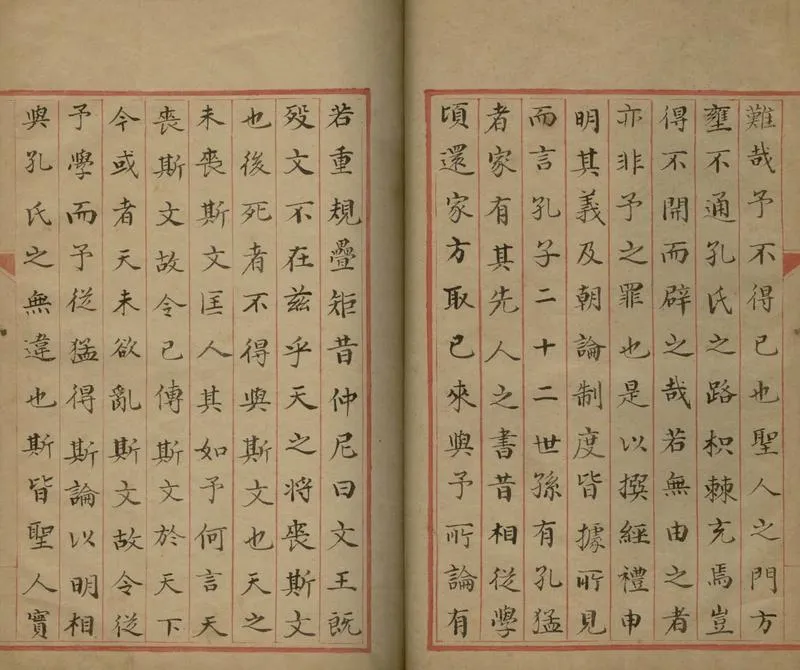 難哉予不得已也聖人之門方
壅不通孔氏之路枳棘充焉豈
得不開而辟之哉若無由之者
亦非予之罪也是以撰經禮申
明其義及朝論制度皆據所見
而言孔子二十二世孫有孔猛
者家有其先人之書昔相從學
頃還家方取已來與予所論有
若重規疊矩昔仲尼曰文王既
歿文不在茲乎天之將喪斯文
也後死者不得與斯文也天之
未喪斯文匡人其如予何言天
喪斯文故令已傳斯文於天下
今或者天未欲亂斯文故令從
予學而予從猛得斯論以明相
與孔氏之無違也斯皆聖人實